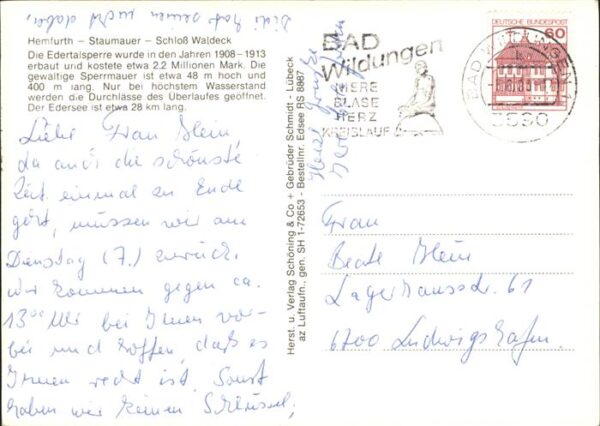 Hemfurth – Staumauer – Schloß Waldeck
Die Edertalsperre wurde in den Jahren 1908–1913
erbaut und kostete etwa 2.2 Millionen Mark. Die
gewaltige Sperrmauer ist etwa 48 m hoch und
400 m lang. Nur bei höchstem Wasserstand
werden die Durchlässe des Überlaufes geöffnet.
Der Edersee ist etwa 28 km lang.
Liebe Frau Klein,
da auch die schönste
Zeit einmal zu Ende
geht, müssen wir am
Dienstag (7.) zurück.
Wir kommen gegen ca.
13⁰⁰ Uhr bei Ihnen vor-
bei und hoffen, daß es
Ihnen recht ist. Sonst
haben wir keinen Schlüssel,
Didi hat seinen nicht dabei.
Herzl. Grüße
Herst. u. Verlag Schöning & Co + Gebrüder Schmidt - Lübeck
az Luftaufn., gen. SH 1-72653 - Bestellnr. Edsee RS 8867
BAD
Wildungen
NIERE
BLASE
HERZ
KREISLAUF
BAD WILDUNGEN
3590
DEUTSCHE BUNDESPOST
60
Frau
Beate Klein
Lagerhausstr. 61
6700 Ludwigshafen